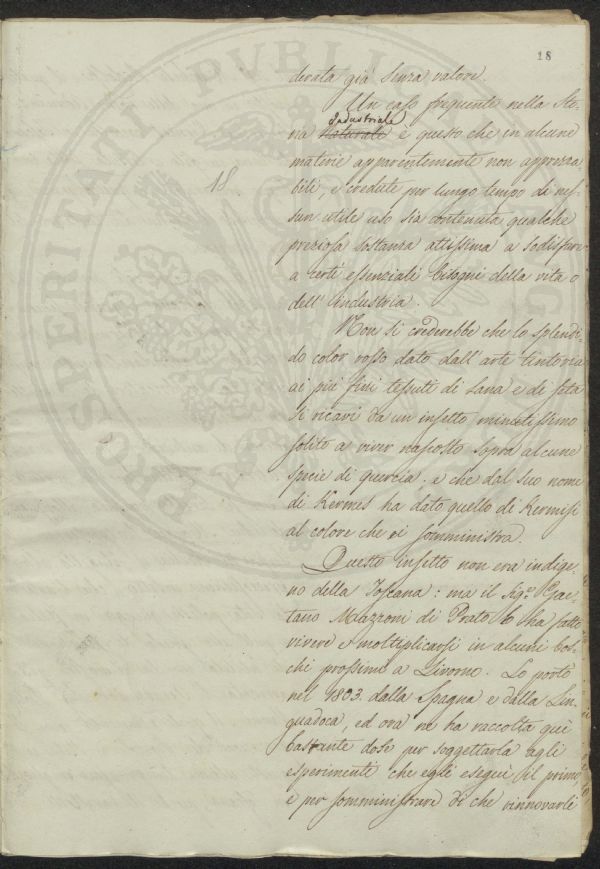 18
derata già senza valore.
Un caso frequente nella Sto-
Industriale
ria Naturale è questo che in alcune
materie apparentemente non apprezza-
18.
bili, e credute per lungo tempo di nes-
sun utile uso sia contenuta qualche
preziosa sostanza attissima a sodisfare
a certi essenziali bisogni della vita o
dell'Industria.
Non si crederebbe che lo splendi-
do color rosso dato dall'arte tintoria
ai più fini tessuti di Lana e di seta
si ricavi da un insetto minutissimo
solito a viver nascosto sopra alcune
specie di quercia, e che dal suo nome
di Kermes ha dato quello di Kermisi
al colore che ci somministra.
Questo insetto non era indige-
no della Toscana: ma il Sig.e Gae-
tano Mazzoni di Prato lo ha fatto
vivere e moltiplicarsi in alcuni bos-
chi prossimi a Livorno. Lo portò
nel 1803. dalla Spagna e dalla Lin-
guadoca, ed ora ne ha raccolta quì
bastante dose per soggettarla agli
esperimenti che egli eseguì il primo,
e per somministrare di che rinnovarli
PROSPERITATI PUBLICAE